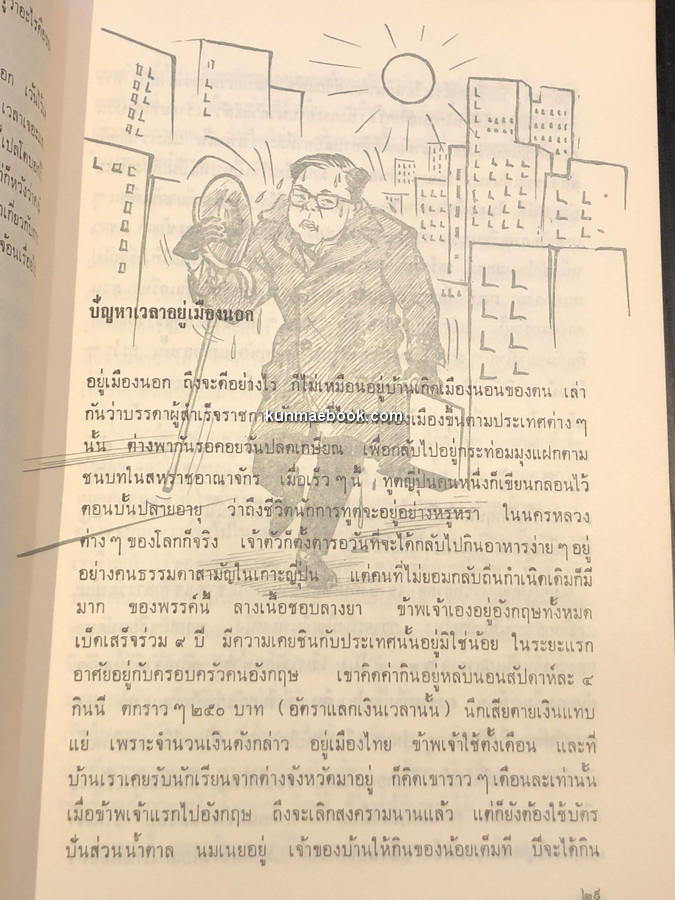 ปัญหาเวลาอยู่เมืองนอก
อยู่เมืองนอก ถึงจะดีอย่างไร ก็ไม่เหมือนอยู่บ้านเกิดเมืองนอนของตน เล่า
กันว่าบรรดาผู้สำเร็จราชการ เมืองขึ้นตามประเทศต่าง ๆ
kunmaebook.com
นั้น ต่างพากันรอคอยวันปลดเกษียณ เพื่อกลับไปอยู่กระท่อมมุงแฝกตาม
ชนบทในสหราชอาณาจักร เมื่อเร็ว ๆ นี้ ทูตญี่ปุ่นคนหนึ่งก็เขียนกลอนไว้
ตอนบั้นปลายอายุ ว่าถึงชีวิตนักการทูตจะอยู่อย่างหรูหรา ในนครหลวง
ต่าง ๆ ของโลกก็จริง เจ้าตัวก็ตั้งตารอวันที่จะได้กลับไปกินอาหารง่าย ๆ อยู่
อย่างคนธรรมดาสามัญในเกาะญี่ปุ่น แต่คนที่ไม่ยอมกลับถิ่นกำเนิดเดิมก็มี
มาก ของพรรค์นี้ ลางเนื้อชอบลางยา ข้าพเจ้าเองอยู่อังกฤษทั้งหมด
เบ็ดเสร็จร่วม ๙ ปี มีความเคยชินกับประเทศนั้นอยู่มิใช่น้อย ในระยะแรก
อาศัยอยู่กับครอบครัวคนอังกฤษ เขาคิดค่ากินอยู่หลับนอนสัปดาห์ละ ๔
กินนี ตกราว ๆ ๒๕๐ บาท (อัตราแลกเงินเวลานั้น) นึกเสียดายเงินแทบ
แย่ เพราะจำนวนเงินดังกล่าว อยู่เมืองไทย ข้าพเจ้าใช้ตั้งเดือน และที่
บ้านเราเคยรับนักเรียนจากต่างจังหวัดมาอยู่ ก็คิดเขาราว ๆ เดือนละเท่านั้น
เมื่อข้าพเจ้าแรกไปอังกฤษ ถึงจะเลิกสงครามนานแล้ว แต่ก็ยังต้องใช้บัตร
ปันส่วนน้ำตาล นมเนยอยู่ เจ้าของบ้านให้กินของน้อยเต็มที ปีจะได้กิน